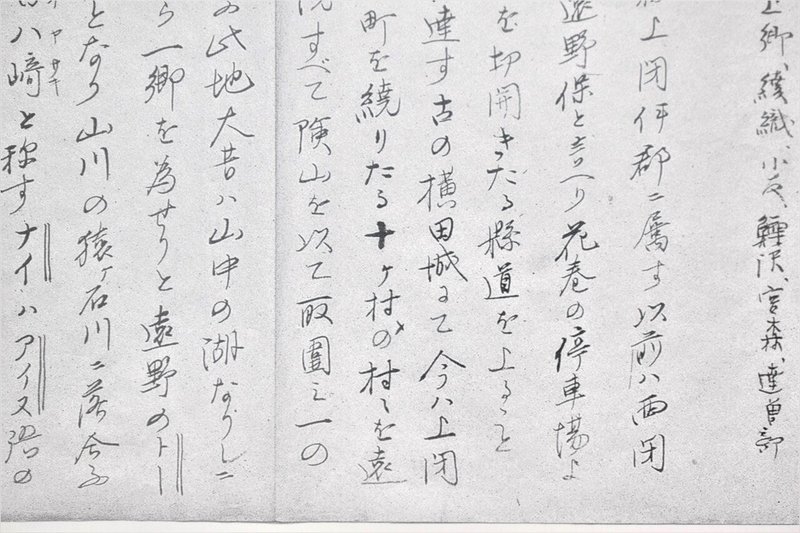 上郷、綾織、小友、鱒沢、宮森、達曽部
上閉伊郡ニ属す以前ハ西閉
遠野保と言へり花巻の停車場よ
を切開きたる縣道を上ること
達す古の横田城にて今ハ上閉
町を繞りたる十ヶ村の村々を遠
すべて険山を以て取圍ミ一の
の此地大昔ハ山中の湖なりしニ
ら一郷を為せりと遠野のトー
となり山川の猿ヶ石川ニ落合ふ
八崎と称すナイハアイヌ語の